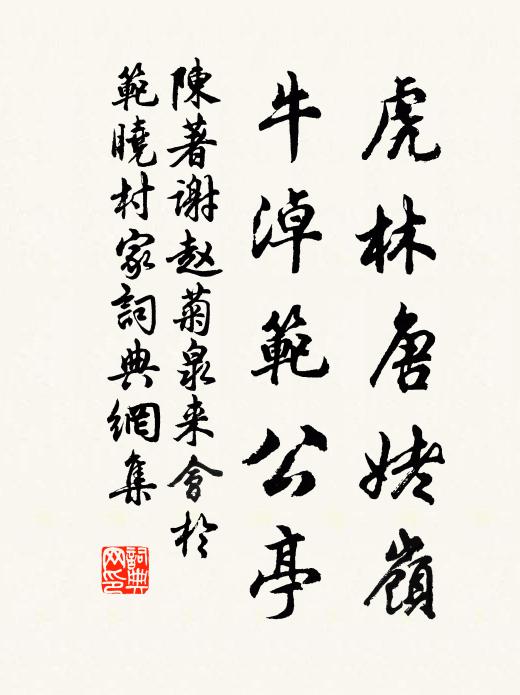 虎林唐姥嶺
牛淖範公亭
陳著謝赵菊泉来會於
範曉村家詞典網集
詞典网印